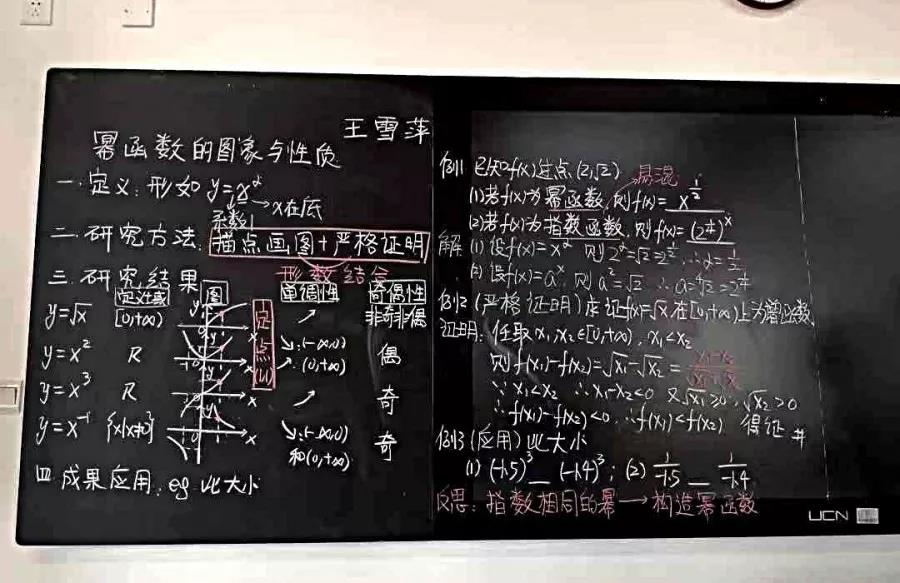 王雪萍
幂函数的图象与性质
一.定义:形如 y=x^α
系数1 → x在底
二.研究方法:描点画图+严格证明
形数结合
三.研究结果
定义域 图 单调性 奇偶性
y=√x [0,+∞) ↗ 非奇非偶
y=x² R ↘(-∞,0) 偶
↗(0,+∞)
y=x³ R ↗ 奇
y=x⁻¹ {x|x≠0} ↘(-∞,0) 奇
和(0,+∞)
定点(1,1)
四 成果应用:eg 比大小
例1 已知f(x)过点(2,√2) 易混
(1)若f(x)为幂函数,则f(x)=x^(1/2)
(2)若f(x)为指数函数,则f(x)=
解(1)设f(x)=x^α 则2^α=√2=2^(1/2) ∴α=1/2
(2)设f(x)=a^x,则a²=√2 ∴a=
例2(严格证明)求证f(x)=√x在[0,+∞)上为增函数
证明:任取x₁,x₂∈[0,+∞),x₁<x₂
则f(x₁)-f(x₂)=√x₁-√x₂=
∵x₁<x₂ ∴x₁-x₂<0 又√x₁≥0,√x₂>0
∴f(x₁)-f(x₂)<0,∴f(x₁)<f(x₂) 得证 #
例3(应用)比大小
(1)(-1.5)³__(-1.4)³;(2)1/-1.5__1/-1.4
反思:指数相同的幂→构造幂函数
UCN